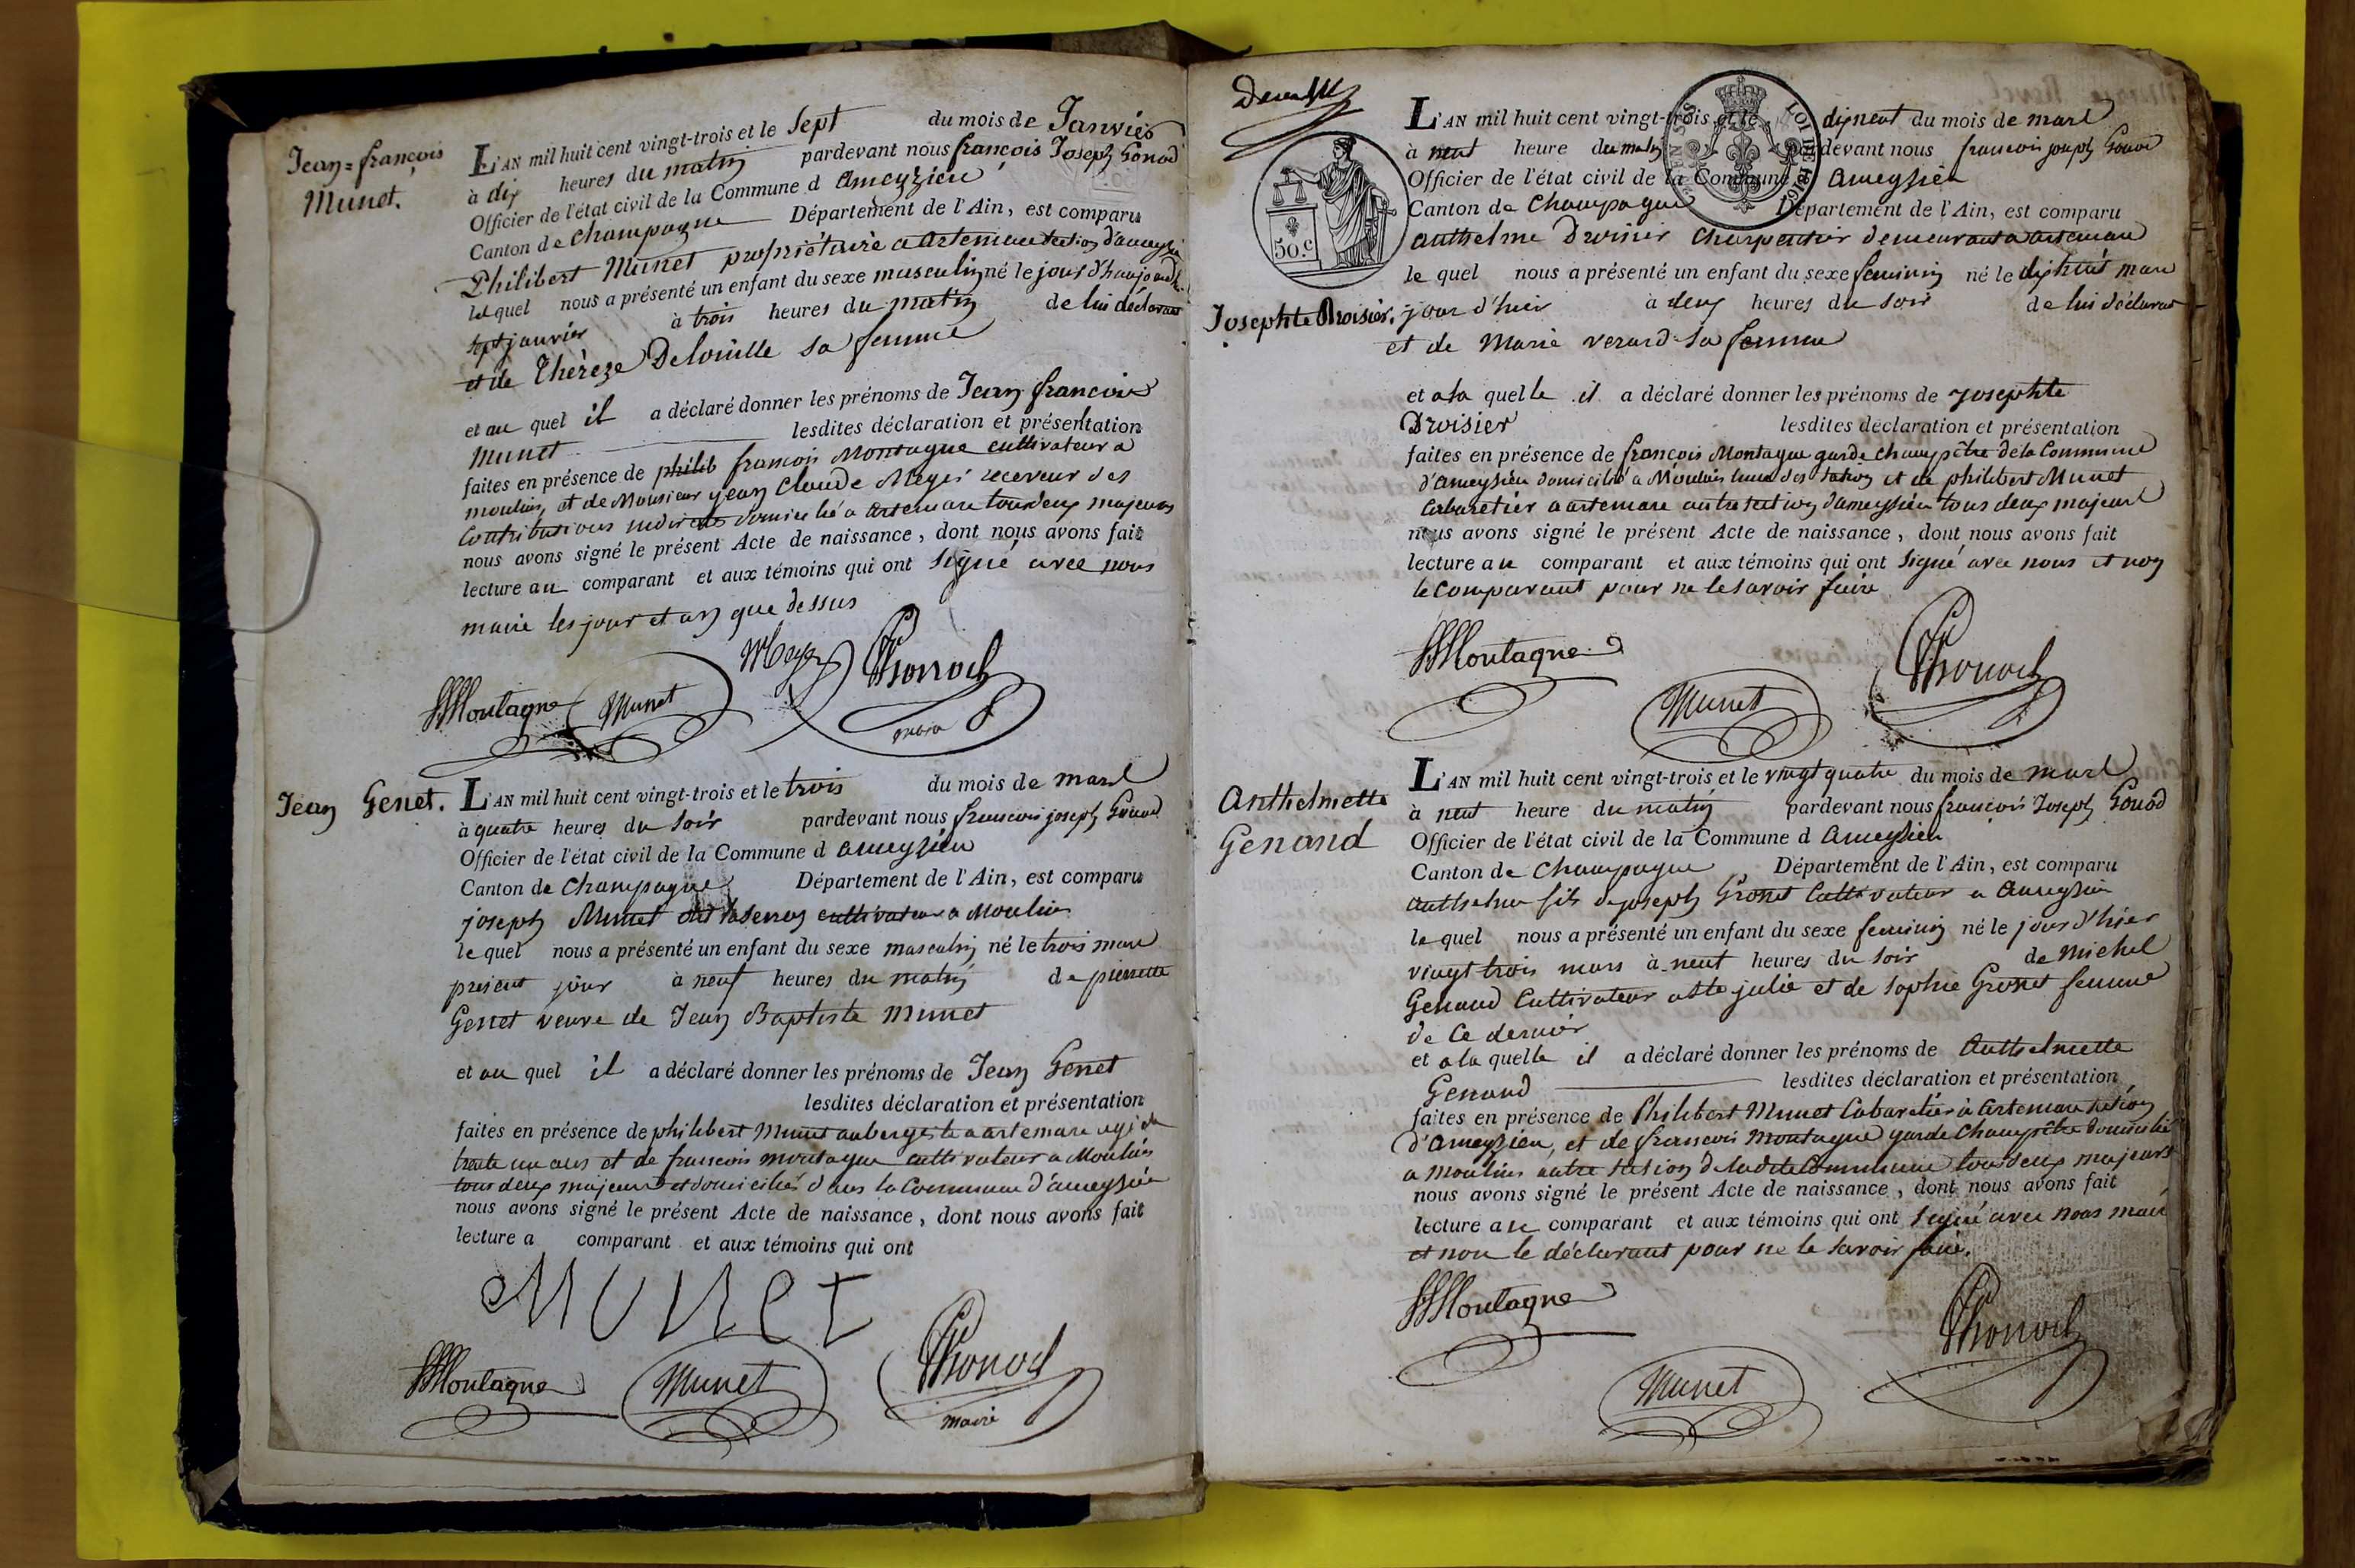 Jean=françois
Munet.
L'AN mil huit cent vingt-trois et le Sept du mois de Janvier
à dix heures du matin pardevant nous françois Joseph Gonod
Officier de l'état civil de la Commune d Ameyzieu
Canton de Champagne Département de l'Ain, est comparu
Philibert Munet propriétaire a Artemare section d'ameyzieu
lequel nous a présenté un enfant du sexe masculin né le jour d'haujourdh.
sept janvier à trois heures du matin de lui déclarant
et de Thèrèze Delouille sa femme
et au quel il a déclaré donner les prénoms de Jean françois
Munet lesdites déclaration et présentation
faites en présence de philib françois Montagne cultivateur a
moulin, et de Monsieur jean Claude receveur des
Contributions indirectes domicilié a Artemare tous deux majeurs
nous avons signé le présent Acte de naissance, dont nous avons fait
lecture au comparant et aux témoins qui ont signé avec nous
maire les jour et an que dessus
Montagne Munet Gonod
maire
Jean Genet.
L'AN mil huit cent vingt-trois et le trois du mois de mars
à quatre heures du soir pardevant nous françois joseph Gonod
Officier de l'état civil de la Commune d ameyzieu
Canton de Champagne Département de l'Ain, est comparu
joseph Munet cultivateur a Moulin
le quel nous a présenté un enfant du sexe masculin né le trois mars
present jour à neuf heures du matin de pierrette
Genet veuve de Jean Baptiste Munet
et au quel il a déclaré donner les prénoms de Jean Genet
lesdites déclaration et présentation
faites en présence de philibert Munet aubergiste a artemare agé de
trente un ans et de francois montagne cultivateur a Moulin
tous deux majeurs et domiciliés dans la Commune d'ameyzieu
nous avons signé le présent Acte de naissance, dont nous avons fait
lecture a comparant et aux témoins qui ont
Munet
Montagne Munet Gonod
maire
50.c
LOI DE 1816
Josephte Droisier.
L'AN mil huit cent vingt-trois et le dixneuf du mois de mars
à neuf heure du matin pardevant nous francois joseph Gonod
Officier de l'état civil de la Commune d Ameyzieu
Canton de Champagne Département de l'Ain, est comparu
anthelme Droisier Charpentier demeurant a artemare
le quel nous a présenté un enfant du sexe feminin né le dixhuit mars
jour d'hier à deux heures du soir de lui déclarant
et de Marie verard sa femme
et a la quelle il a déclaré donner les prénoms de josephte
Droisier lesdites déclaration et présentation
faites en présence de françois Montagne garde champêtre de la Commune
d'Ameyzieu domicilié a Moulin lune des section et de philibert Munet
Cabaretier a artemare autre section d'ameyzieu tous deux majeurs
nous avons signé le présent Acte de naissance, dont nous avons fait
lecture au comparant et aux témoins qui ont signé avec nous et non
le comparant pour ne le savoir faire
Montagne Munet Gonod
Anthelmette
Genand
L'AN mil huit cent vingt-trois et le vingt quatre du mois de mars
à neuf heure du matin pardevant nous françois Joseph Gonod
Officier de l'état civil de la Commune d Ameyzieu
Canton de Champagne Département de l'Ain, est comparu
anthelme fils de joseph Cultivateur a Ameyzieu
le quel nous a présenté un enfant du sexe feminin né le jour d'hier
vingt trois mars à neuf heures du soir de michel
Genand Cultivateur a Ste julie et de Sophie femme
de Ce dernier
et a la quelle il a déclaré donner les prénoms de Anthelmette
Genand lesdites déclaration et présentation
faites en présence de Philibert Munet Cabaretier à Artemare section
d'Ameyzieu, et de francois montagne garde Champêtre domicilié
a moulin autre section de ladite Commune tous deux majeurs
nous avons signé le présent Acte de naissance, dont nous avons fait
lecture au comparant et aux témoins qui ont signé avec nous maire
et non le déclarant pour ne le savoir faire.
Montagne Munet Gonod